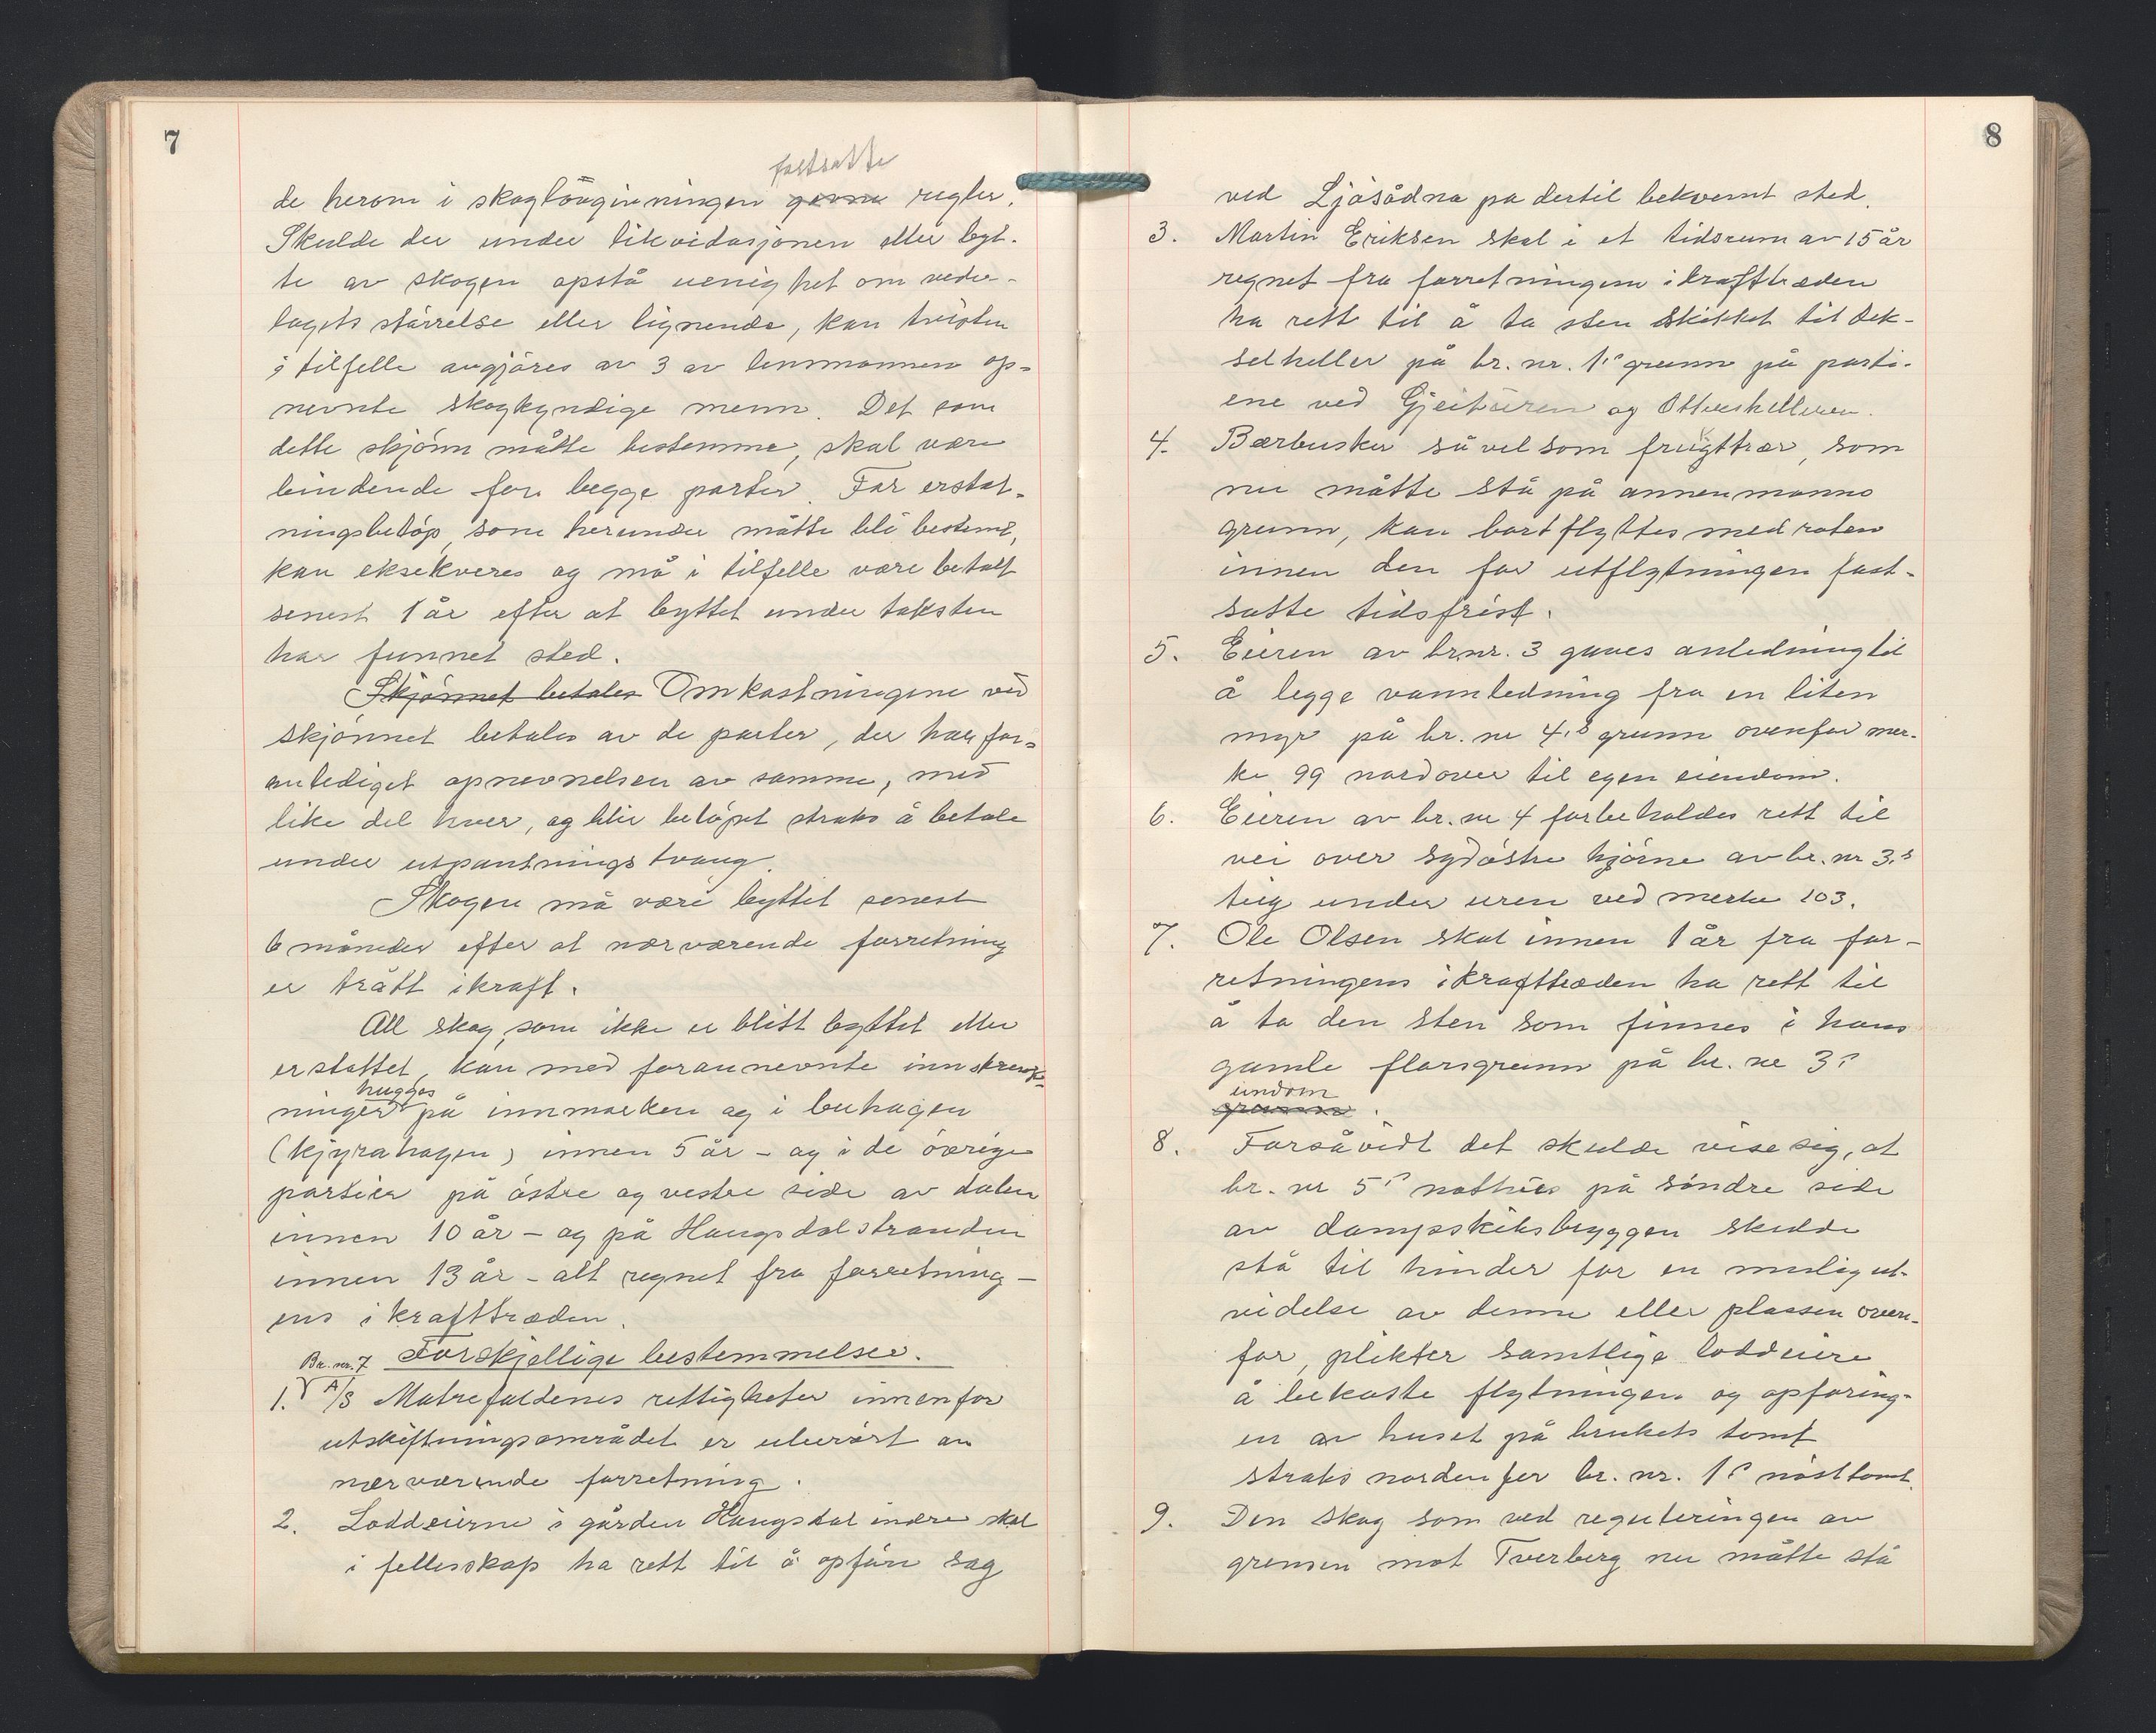 7
fastsatte
de herom i skoglovgivningen gevne regler.
Skulde der under likvidasjonen eller byt-
te av skogen opstå uenighet om veder-
lagets størrelse eller lignende, kan tvisten
i tilfelle avgjöres av 3 av lensmannen op-
nevnte skogkyndige menn. Det som
dette skjönn måtte bestemme, skal være
bindende for begge parter. For erstat-
ningsbelöp, som herunder måtte bli bestemt,
kan eksekveres og må i tilfelle være betalt
senest 1 år efter at byttet under taksten
har funnet sted.
Skjönnet betales Omkostningene ved
skjönnet betales av de parter, der har for-
anlediget opnevnelsen av samme, med
like del hver, og blir belöpet straks å betale
under utpantningstvang.
Skogen må være byttet senest
6 måneder efter at nærværende forretning
er trått ikraft.
All skog, som ikke er blitt byttet eller
erstattet, kan med forannevnte innskrenk-
hugges
ninger på innmarken og i buhagen
(kjyrahagen) innen 5 år - og i de övrige
partier på östre og vestre side av dalen
innen 10 år - og på Haugsdalstranden
innen 13 år - alt regnet fra forretning-
ens ikrafttræden.
Br. nr. 7 Forskjellige bestemmelser.
1. A/S Matrefaldenes rettigheter innenfor
utskiftningsområdet er uberört av
nærværende forretning.
2. Loddeierne i gården Haugsdal indre skal
i fellesskap ha rett til å opföre sag
8
ved Ljösådna på dertil bekvemt sted.
3. Martin Eriksen skal i et tidsrum av 15 år
regnet fra forretningens ikrafttræden
ha rett til å ta sten skikket til tek-
selheller på br. nr. 1's grunn på parti-
ene ved Gjeitören og Otterhelleren.
4. Bærbusker såvel som frugttrær, som
nu måtte stå på annenmanns
grunn, kan bortflyttes med roten
innen den for utflytningen fast-
satte tidsfrist.
5. Eieren av br.nr. 3 gives anledning til
å legge vannledning fra en liten
myr på br. nr 4's grunn ovenfor mer-
ke 99 nordover til egen eiendom.
6. Eieren av br. nr 4 forbeholdes rett til
vei over sydöstre hjörne av br. nr 3's
teig under uren ved merke 103.
7. Ole Olsen skal innen 1 år fra for-
retningens ikrafttræden ha rett til
å ta den sten som finnes i hans
gamle florsgrunn på br. nr 3's
eindom
grunn.
8. Forsåvidt det skulde vise sig, at
br. nr 5's nøsthus på söndre side
av dampskibsbryggen skulde
stå til hinder for en mulig ut-
videlse av denne eller plassen oven-
for, plikter samtlige loddeiere
å bekoste flytningen og opföring-
en av huset på brukets tomt
straks nordenfor br. nr. 1's nösttomt.
9. Den skog som ved reguleringen av
grensen mot Tverberg nu måtte stå